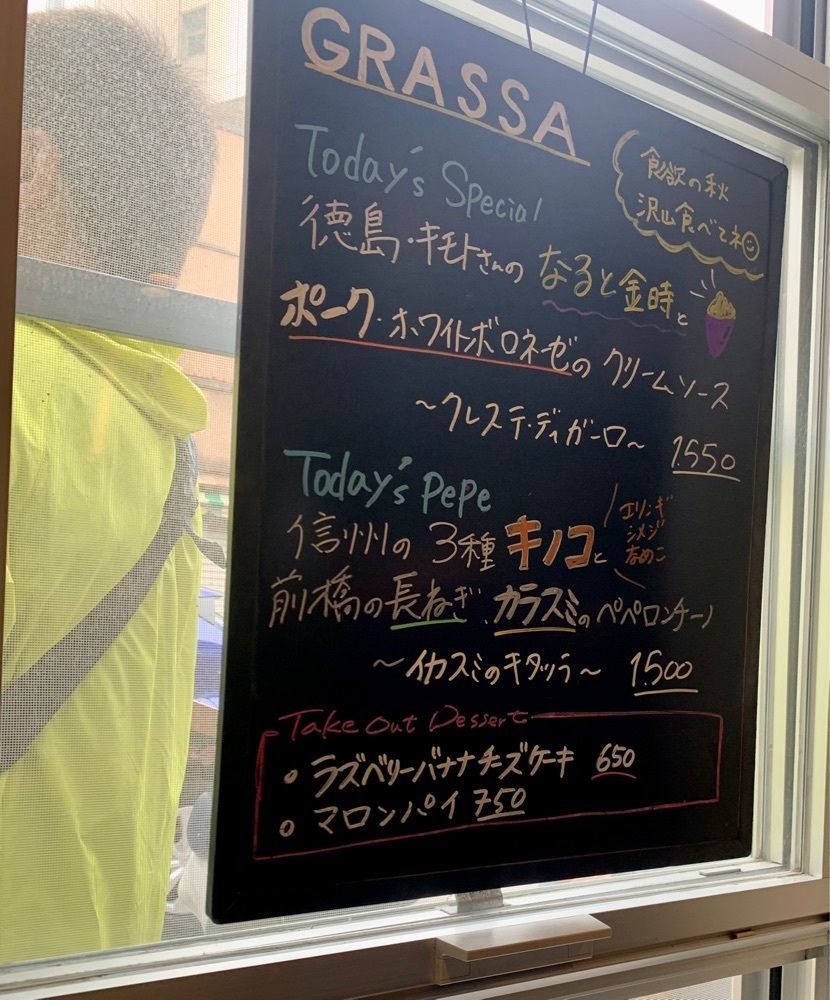 GRASSA
食欲の秋
沢山食べてネ
Today's Special
徳島・キモトさんの なると金時と
ポーク・ホワイトボロネーゼの クリームソース
～クレステ・ディガーロ～ 1.550
Today's PePe
信州の 3種 キノコと
エリンギ
シメジ
なめこ
前橋の長ねぎ、カラスミのペペロンチーノ
～イカスミのキタッラ～ 1.500
Take Out Dessert
○ ラズベリーバナナチーズケーキ 650
○ マロンパイ 750